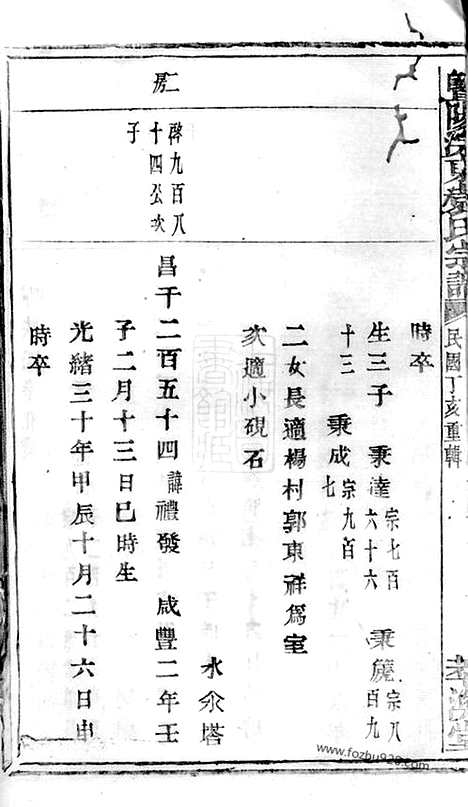 暨陽浣東蔡氏宗譜 民國丁亥重輯
時卒
生三子 秉達宗七百六十六 秉範宗八百九十三 秉成宗九百七
二女長適楊村郭東祥為室
次適小硯石
水氽塔
二房
碑九百八十四公次子
昌千二百五十四諱禮發 咸豐二年壬
子二月十三日巳時生
光緒三十年甲辰十月二十六日申
時卒
www.fozhu920.com